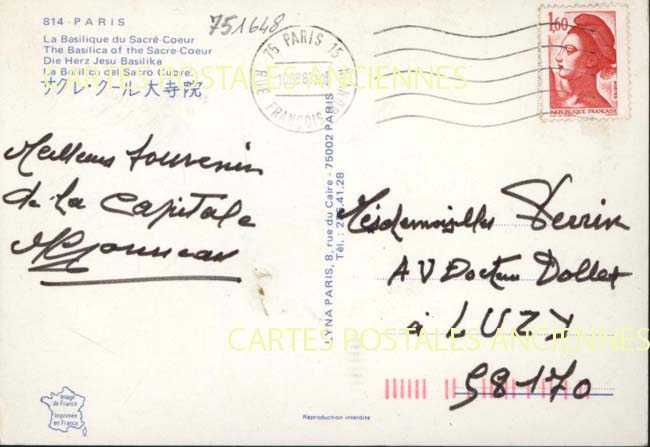 814 - PARIS
La Basilique du Sacré-Coeur
The Basilica of the Sacre-Coeur
Die Herz Jesu Basilika
La Basilica del Sacro Cuore.
サクレ・クール大寺院
751648
75 PARIS 15
FRANÇOIS
1,60
REPUBLIQUE FRANÇAISE
CARTES POSTALES ANCIENNES
Meilleurs souvenirs
de la Capitale
LYNA PARIS, 8, rue du Caire - 75002 PARIS
Mesdemoiselles Perrin
AV Docteur Dollet
à LUZY
58170
CARTES POSTALES ANCIENNES
Image
de France
Imprimée
en France
Reproduction interdite